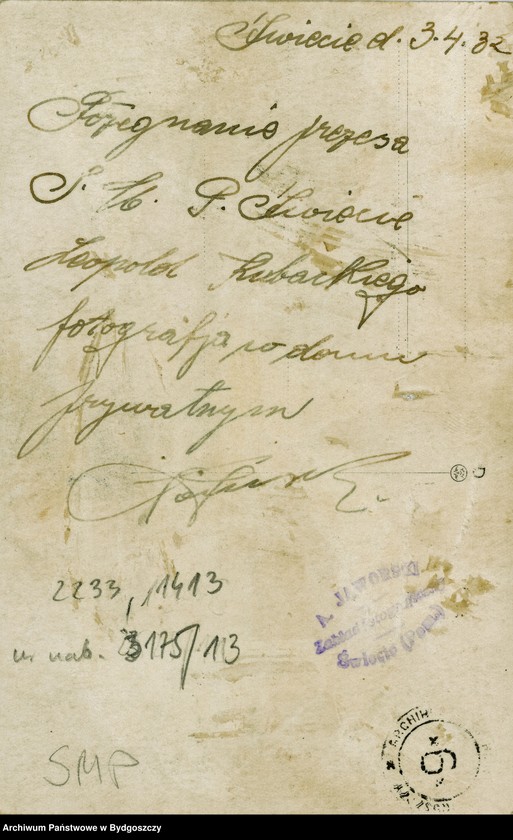 Świecie d. 3.4.32
Pożegnanie prezesa
S. M. P. Świecie
Leopold Kubackiego
fotografja w domu
prywatnym
2233, 11413
nr nab. 3175/113
A. JAWORSKI
Zakład Fotograficzny
Świecie (Pom.)
SMP
ARCHIW
6
Archiwum Państwowe w Bydgoszczy